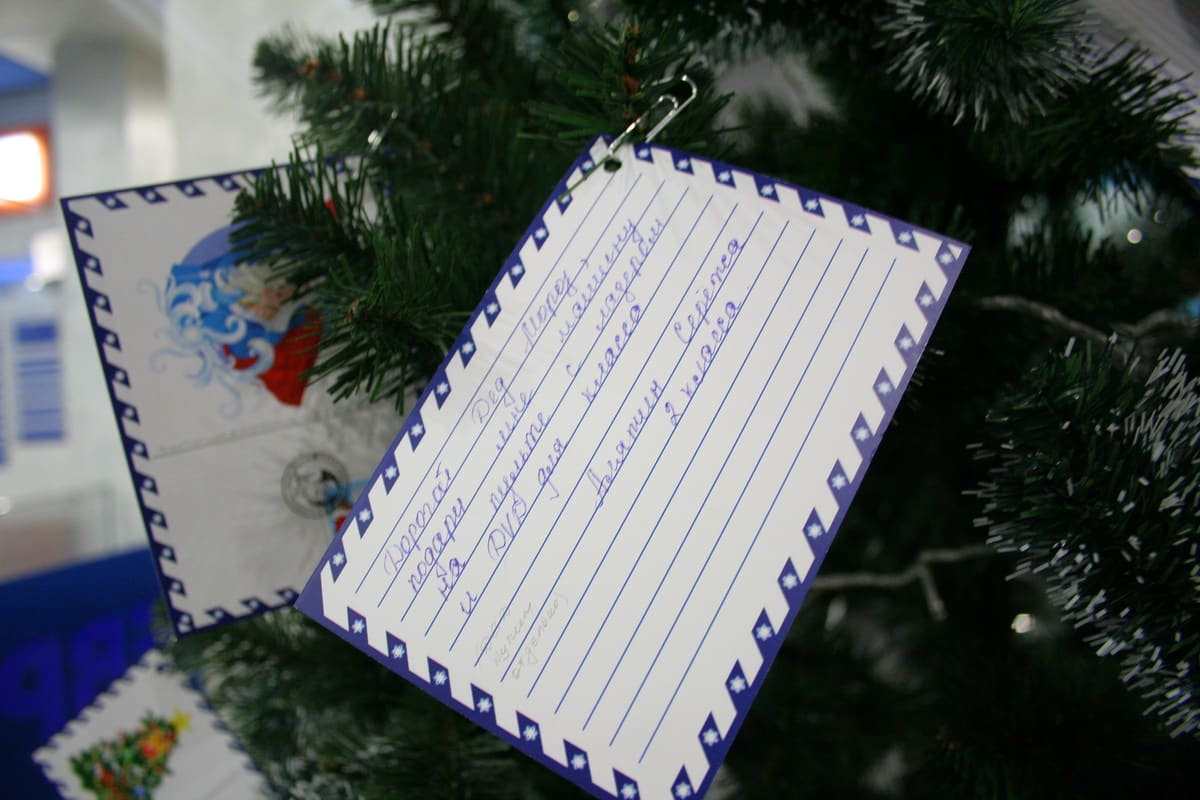 Дорогой Дед Мороз,
подари мне машину
на пульте с лазером
и DVD для класса
Серёжа
2 класса.